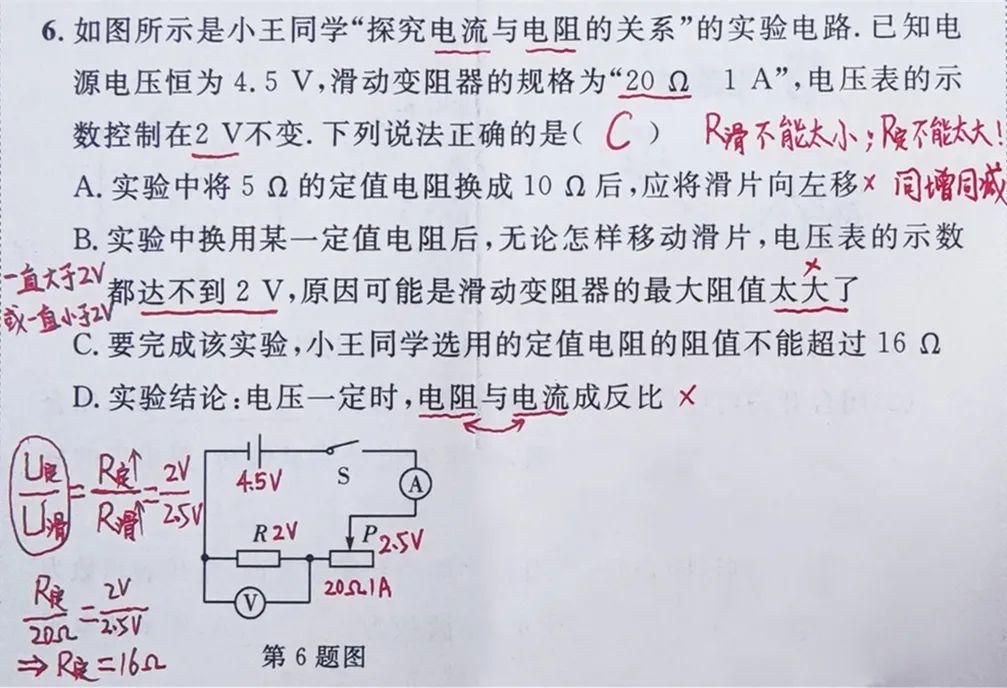 6. 如图所示是小王同学“探究电流与电阻的关系”的实验电路. 已知电
源电压恒为 4.5 V,滑动变阻器的规格为“20 Ω 1 A”,电压表的示
数控制在2 V不变. 下列说法正确的是( C ) R滑不能太小;R定不能太大!
A. 实验中将 5 Ω 的定值电阻换成 10 Ω 后,应将滑片向左移× 同增同减
B. 实验中换用某一定值电阻后,无论怎样移动滑片,电压表的示数
一直大于2V
都达不到 2 V,原因可能是滑动变阻器的最大阻值太大了 ×
或一直小于2V
C. 要完成该实验,小王同学选用的定值电阻的阻值不能超过 16 Ω
D. 实验结论:电压一定时,电阻与电流成反比 ×
U定/U滑 = R定↑/R滑↑ = 2V/2.5V
4.5V S A
R 2V P 2.5V
20Ω 1A
V
R定/20Ω = 2V/2.5V
⇒ R定 = 16Ω
第 6 题图